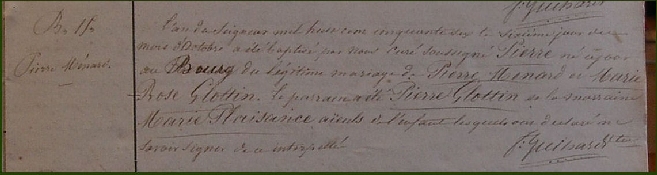 f. Guihard
Bn 15e
L'an du Seigneur mil huit cent cinquante dix le sixième jour du
mois d'Octobre a été baptisé par nous Curé soussigné Pierre né a
Pierre Ménard.
au Bourg du légitime mariage de Pierre Ménard et Marie
Rose Glottin. Le parrain a été Pierre Glottin et la marraine
Marie Plaisance aieuls de l'enfant lesquels ont déclaré ne
savoir signer de ce interpellés
f. Guihard